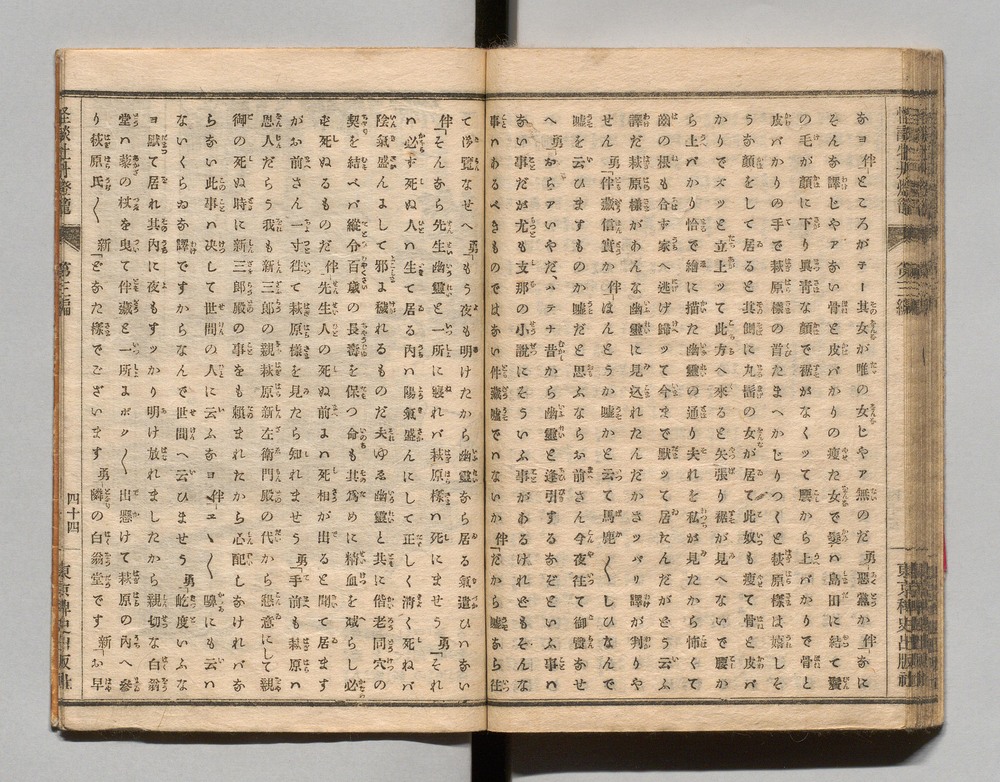 なヨ 伴「ところがチー其女が唯の女じやア無のだ 勇「惡黨か 伴「なに
そんな譯じやアない骨と皮バかりの瘦た女で髮ハ島田に結て鬢
の毛が顏に下り眞青な顏で裾がなくッて腰から上バかりで骨と
皮バかりの手で萩原樣の首たまへかじりつくと萩原樣は嬉しそ
うな顏をして居ると其側に丸髷の女が居て此奴も瘦て骨と皮バ
かりでズッと立上ッて此方へ來ると矢張り裾が見へないで腰か
ら上バかり恰で繪に描た幽靈の通り夫れを私が見たから怖くて
齒の根も合す家へ逃げ歸ッて今まで默ッて居たんだがどう云ふ
譯だ萩原樣があんな幽靈に見込れたんだかさッパリ譯が判りや
せん 勇「伴藏信實か 伴「ほんとうか噓かと云て馬鹿〱しひなんで
噓を云ひますものか噓だと思ふならお前さん今夜往て御覽なせ
へ 勇「おらアいやだ、ハテナ昔から幽靈と逢引するなぞといふ事ハ
ない事だが尤も支那の小説にそういふ事があるけれどもそんな
事ハあるべきものではない伴藏噓でハないか 伴「だから噓なら往
て御覽なせへ 勇「もう夜も明けたから幽靈なら居る氣遣ひハない
伴「そんなら先生幽靈と一所に寢れバ萩原樣ハ死にませう 勇「それ
ハ必ず死ぬ人ハ生て居る內ハ陽氣盛んにして正しく清く死ねバ
陰氣盛んよして邪よ穢れるものだ夫ゆゑ幽靈と共に偕老同穴の
契を結べバ縱令百歲の長壽を保つ命も其爲めに精血を減らし必
ず死ぬるものだ 伴「先生人の死ぬ前よハ死相が出ると聞て居ます
がお前さん一寸徃て萩原樣を見たら知れませう 勇「手前も萩原ハ
恩人だらう我も新三郎の親萩原新左衛門殿の代から懇意にして親
御の死ぬ時に新三郎殿の事をも賴まれたから心配しなけれバな
らない此事ハ决して世間の人に云ふなヨ 伴「エヽ〱嚊にも云ハ
ないくらゐな譯ですからなんで世間へ云ひませう 勇「屹度いふな
ヨ默て居れ其內に夜もすッかり明け放れましたから親切な白翁
堂ハ藜の杖を曳て伴藏と一所よポク〱出懸けて萩原の內へ參
り萩原氏〱 新「どなた樣でございます 勇「隣の白翁堂です 新「お早
怪談牡丹燈籠 第三編 四十四 東京稗史出版社